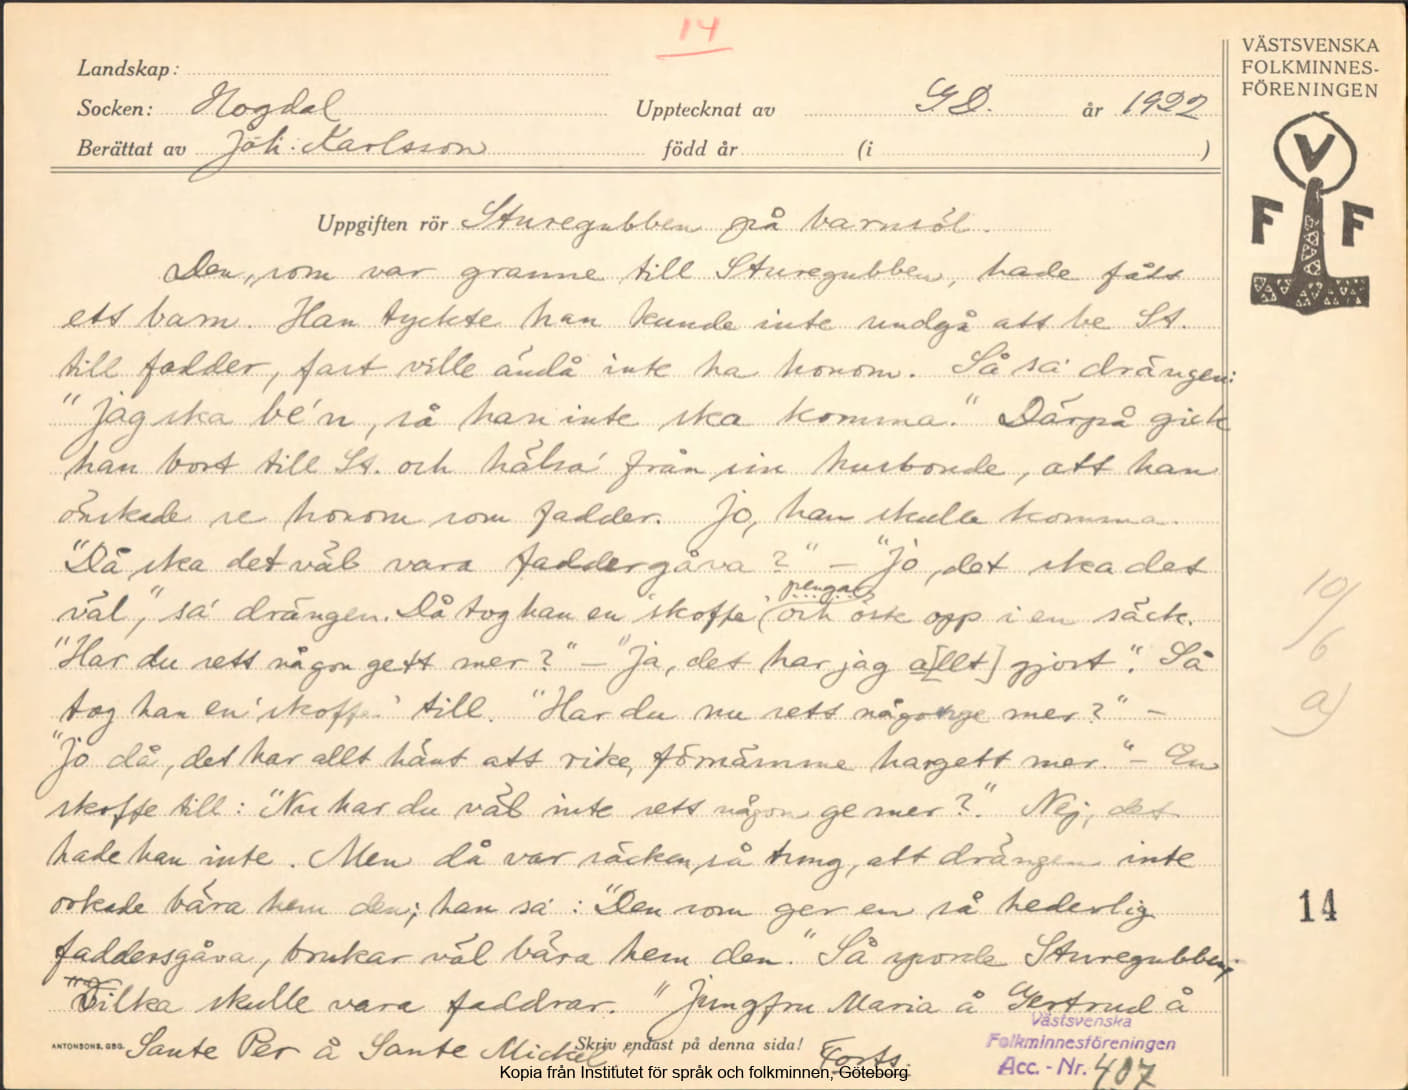 14
VÄSTSVENSKA
FOLKMINNES-
FÖRENINGEN
V
F F
Landskap:
Socken: Hogdal Upptecknat av G D. år 1922
Berättat av Joh. Karlsson född år (i )
Uppgiften rör Sturegubben på barnsöl.
Den, som var granne till Sturegubben, hade fått
ett barn. Han tyckte han kunde inte undgå att be St.
till fadder, fast ville ändå inte ha honom. Så sa' drängen:
"Jag ska be'n, så han inte ska komma." Därpå gick
han bort till St. och hälsa' från sin husbonde, att han
önskade se honom som fadder. Jo, han skulle komma.
"Då ska det väl vara faddergåva?" – "Jo, det ska det
väl," sa' drängen. Då tog han en 'skoffe' pengar och öste opp i en säck.
"Har du sett någon gett mer?" – "Ja, det har jag a[llt] gjort". Så
tog han en 'skoffe' till. "Har du nu sett någon ge mer?" –
"Jo då, det har allt hänt att rike, förnämme har gett mer." – En
skoffe till: "Nu har du väl inte sett någon ge mer?". Nej, det
hade han inte. Men då var säcken så tung, att drängen inte
orkade bära hem den; han sa': "Den som ger en så hederlig
faddersgåva, brukar väl bära hem den." Så sporde Sturegubben,
vilka skulle vara faddrar. "Jungfru Maria å Gertrud å
Sante Per å Sante Mickel
ANTONSONS, GBG. Skriv endast på denna sida! Forts.
10/6 a)
14
Västsvenska
Folkminnesföreningen
Acc. - Nr. 407
Kopia från Institutet för språk och folkminnen, Göteborg